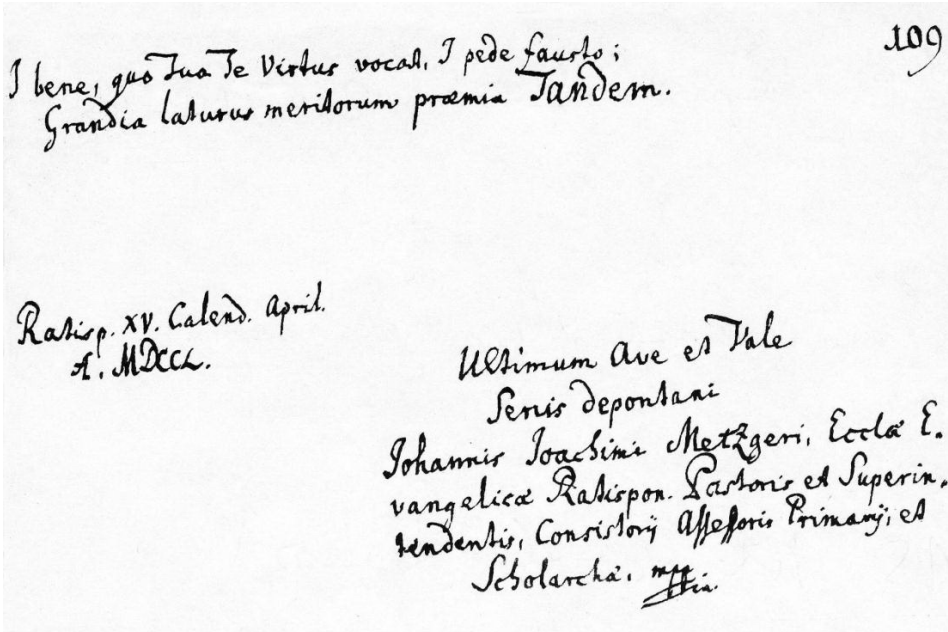 109
I bene, quo Tua Te Virtus vocat, I pede fausto;
Grandia laturus meritorum præmia Tandem.
Ratisp. XV. Calend. April.
A. MDCCL.
Ultimum Ave et Vale
Senis depontani
Johannis Joachimi Metzgeri, Ecclæ E.
vangelicæ Ratispon. Pastoris et Superin.
tendentis, Consistorij Assessoris Primarij, et
Scholarchæ. mppria.